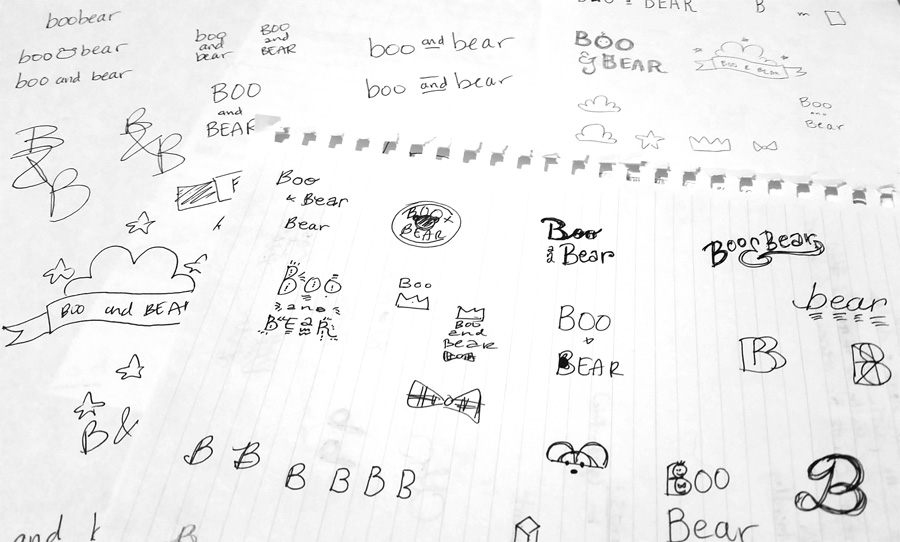 boobear
boo & bear
boo and bear
boo
and
bear
BOO
and
BEAR
BOO
and
BEAR
boo and bear
boo and bear
BEAR
B
BOO
& BEAR
BOO & BEAR
Boo
and
Bear
B
&
B
B
&
B
F
Boo
& Bear
Bear
BOO
BEAR
Boo
& Bear
Boo & Bear
BOO and BEAR
BOO
and
BEAR
Boo
BOO
and
BEAR
BOO
&
BEAR
bear
B
B
B
B &
B B
B B B B
BOO
Bear
B
and
B